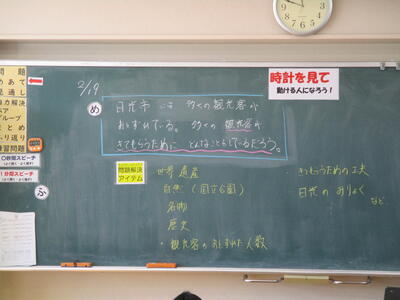 問題
めあて
見通し
自力解決
ペア
グループ
まとめ
ふり返り
練習問題
1分間スピーチ
ふ
2/19
め
日光市には 多くの観光客が
おとずれている。多くの観光客が
きてもらうために どんなことをしているだろう。
時計を見て
動ける人になろう!
問題解決
アイテム
世界遺産
自然(国立公園)
名物
歴史
・観光客のおとずれた人数
きてもらうための工夫
日光の
など